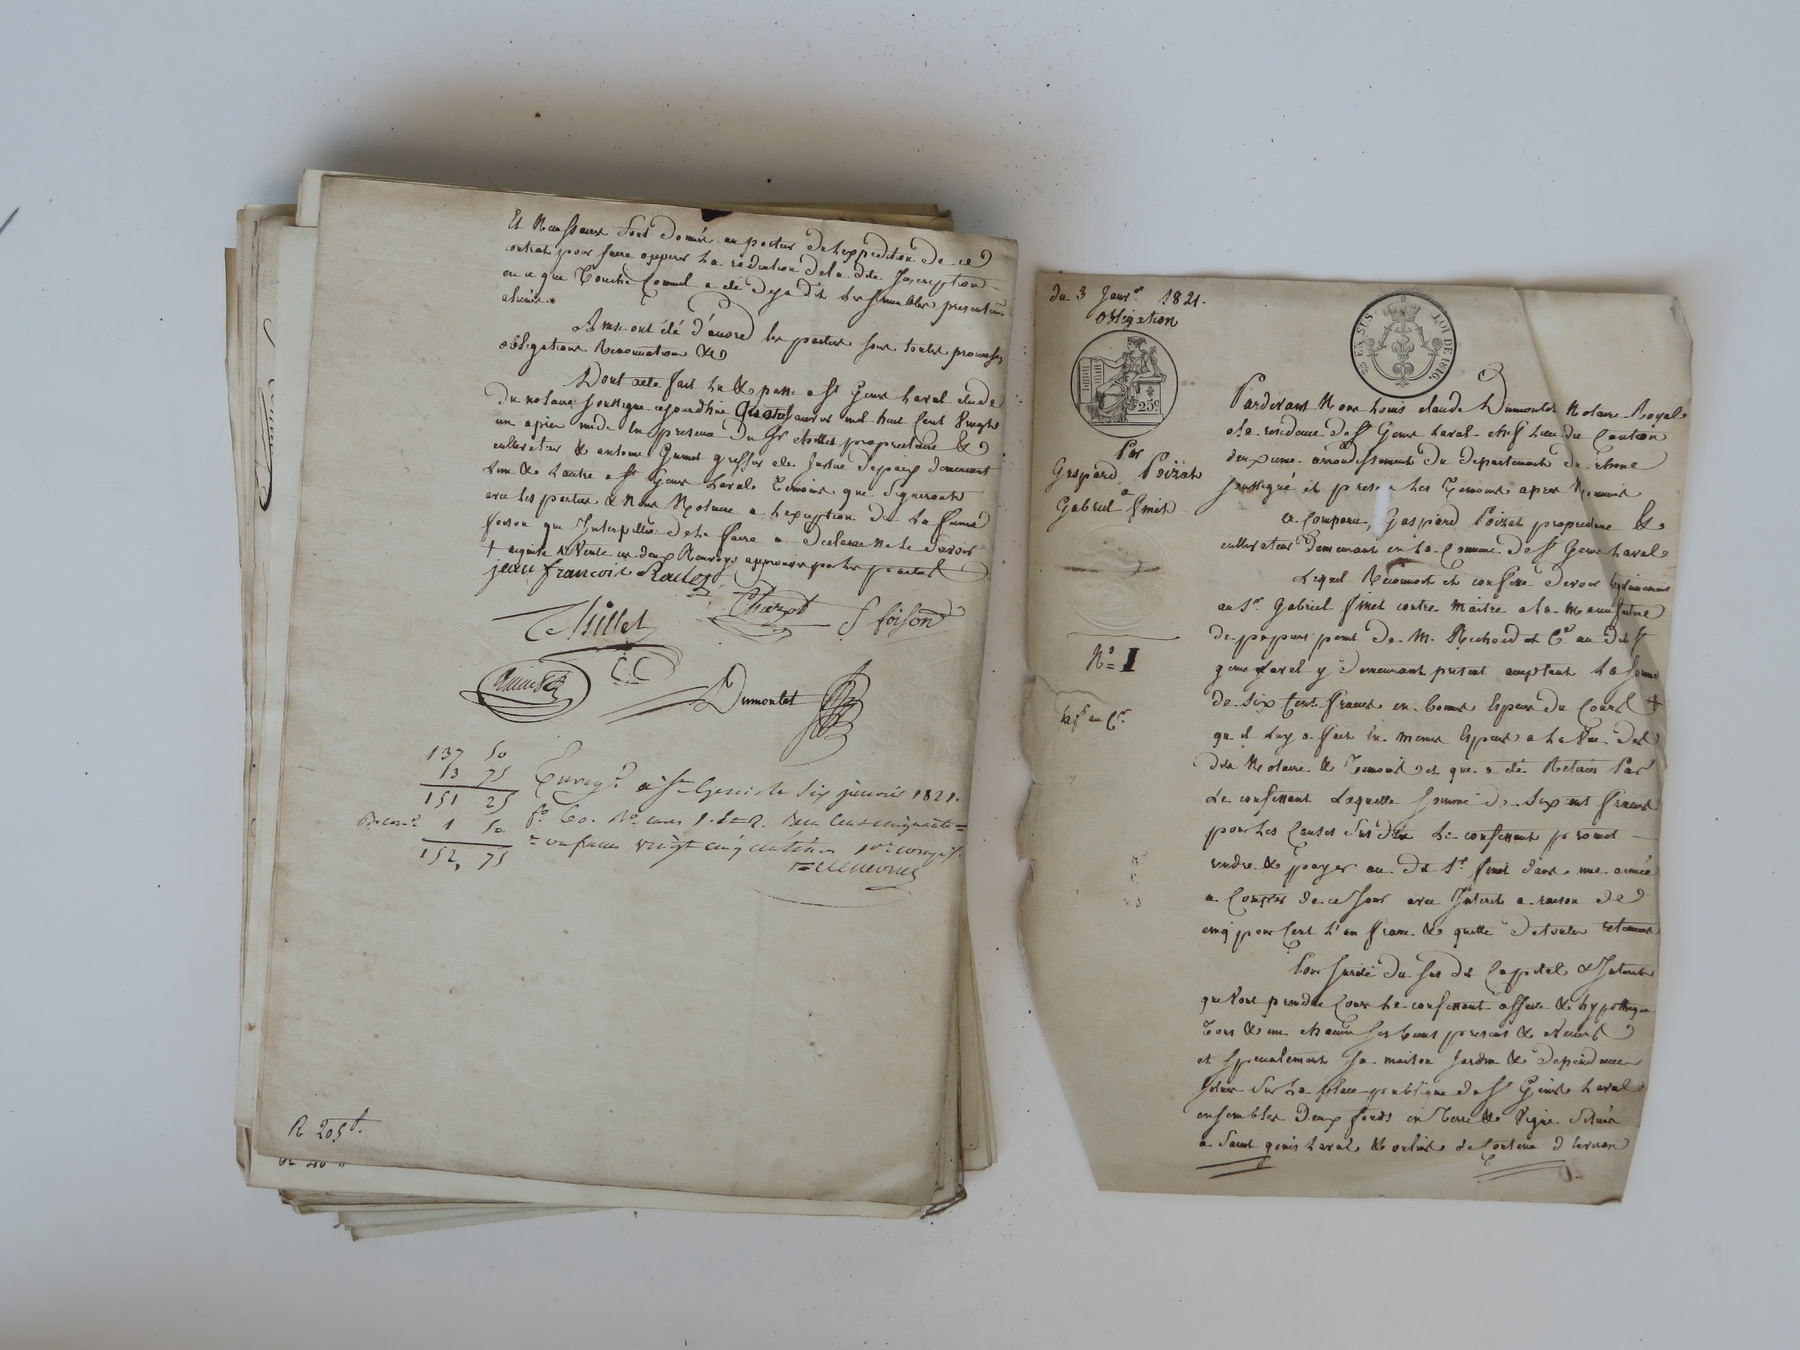 Et Neufsaint sont donné au porteur de l'expedition de ce
contrat pour faire opperer la radiation de la dite Inscription
en ce que touche
Ainsi ont été d'accord les parties sous toutes promesses
obligations Renonciation &a
Dont acte fait lu & passé a St Genis Laval etude
du notaire soussigné aujourdhui quatre janvier mil huit cent vingt
un apres midi En presence du Sr proprietaire &
cultivateur & antoine greffier de la Justice de paix demeurant
L'un & L'autre a St Genis Laval Temoins qui signeront
avec les parties & Nous Notaire a l'exception de La femme
foison qui Interpellée de le faire a declaré Ne le Savoir
jean francois
Thillet
Charpot
f foison
Dumontet
137 50
13 75
151 25
1 50
152, 75
Enregé à St Genis le six janvier 1821.
fo 60. No cases 1. et 2. Reçu cent cinquante
un francs vingt cinq centimes 10e compris
R 205 f.
du 3 Janvr 1821.
obligation
25c
EN SUS
LOI DE 1816.
Par
Gaspard Poizat
a
Gabriel finet
No 1
Pardevant Nous Louis claude Dumontet Notaire Royal
a la residence de St Genis Laval chef Lieu du Canton
deuxieme arrondissement du departement du rhone
soussigné et presens les Temoins apres Nommés
a Comparu, Gaspard Poizat proprietaire &
cultivateur demeurant en la Commune de St Genis Laval
Lequel Reconnoit et confesse devoir legitimement
au Sr Gabriel finet contre maitre a la manufacture
de papiers peint de M. Richoud et Ce au dit St
genis Laval y demeurant present acceptant la somme
de six Cent francs en bonnes Especes du Cours
qu il Luy a fait En memes Especes a la Vue des
dits Notaire & Temoins et qui a été Retirés Par
Le confessant Laquelle somme de six cent francs
pour les Causes Sus dites Le confessant promet
rendre & payer au dit Sr finet dans une année
a Compter de ce Jour avec Interets a raison de
cinq pour Cent L'an franc & quitte de toutes retenues
Pour sureté du sus dit Cappital & Interets
qui Vont prendre Cours Le confessant affecte & hypotheque
Tous & un chacun ses biens presens & avenirs
et specialement sa maison Jardin & dependances
situés sur La place publique de St Genis Laval
ensembles deux fonds en Terre & Vigne Situés
a Saint genis Laval & oulins de Contenu d'environ